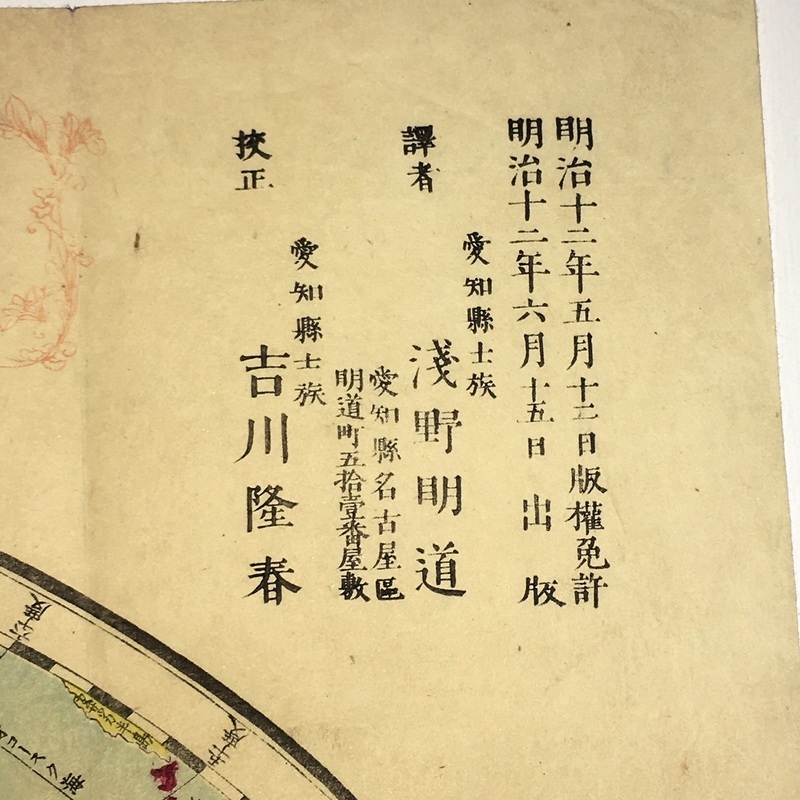 明治十二年五月十二日版權免許
明治十二年六月十五日出版
愛知縣士族
譯者
淺野明道
愛知縣名古屋區
明道町五拾壹番屋敷
愛知縣士族
挍正
吉川隆春
六十度
コースク海